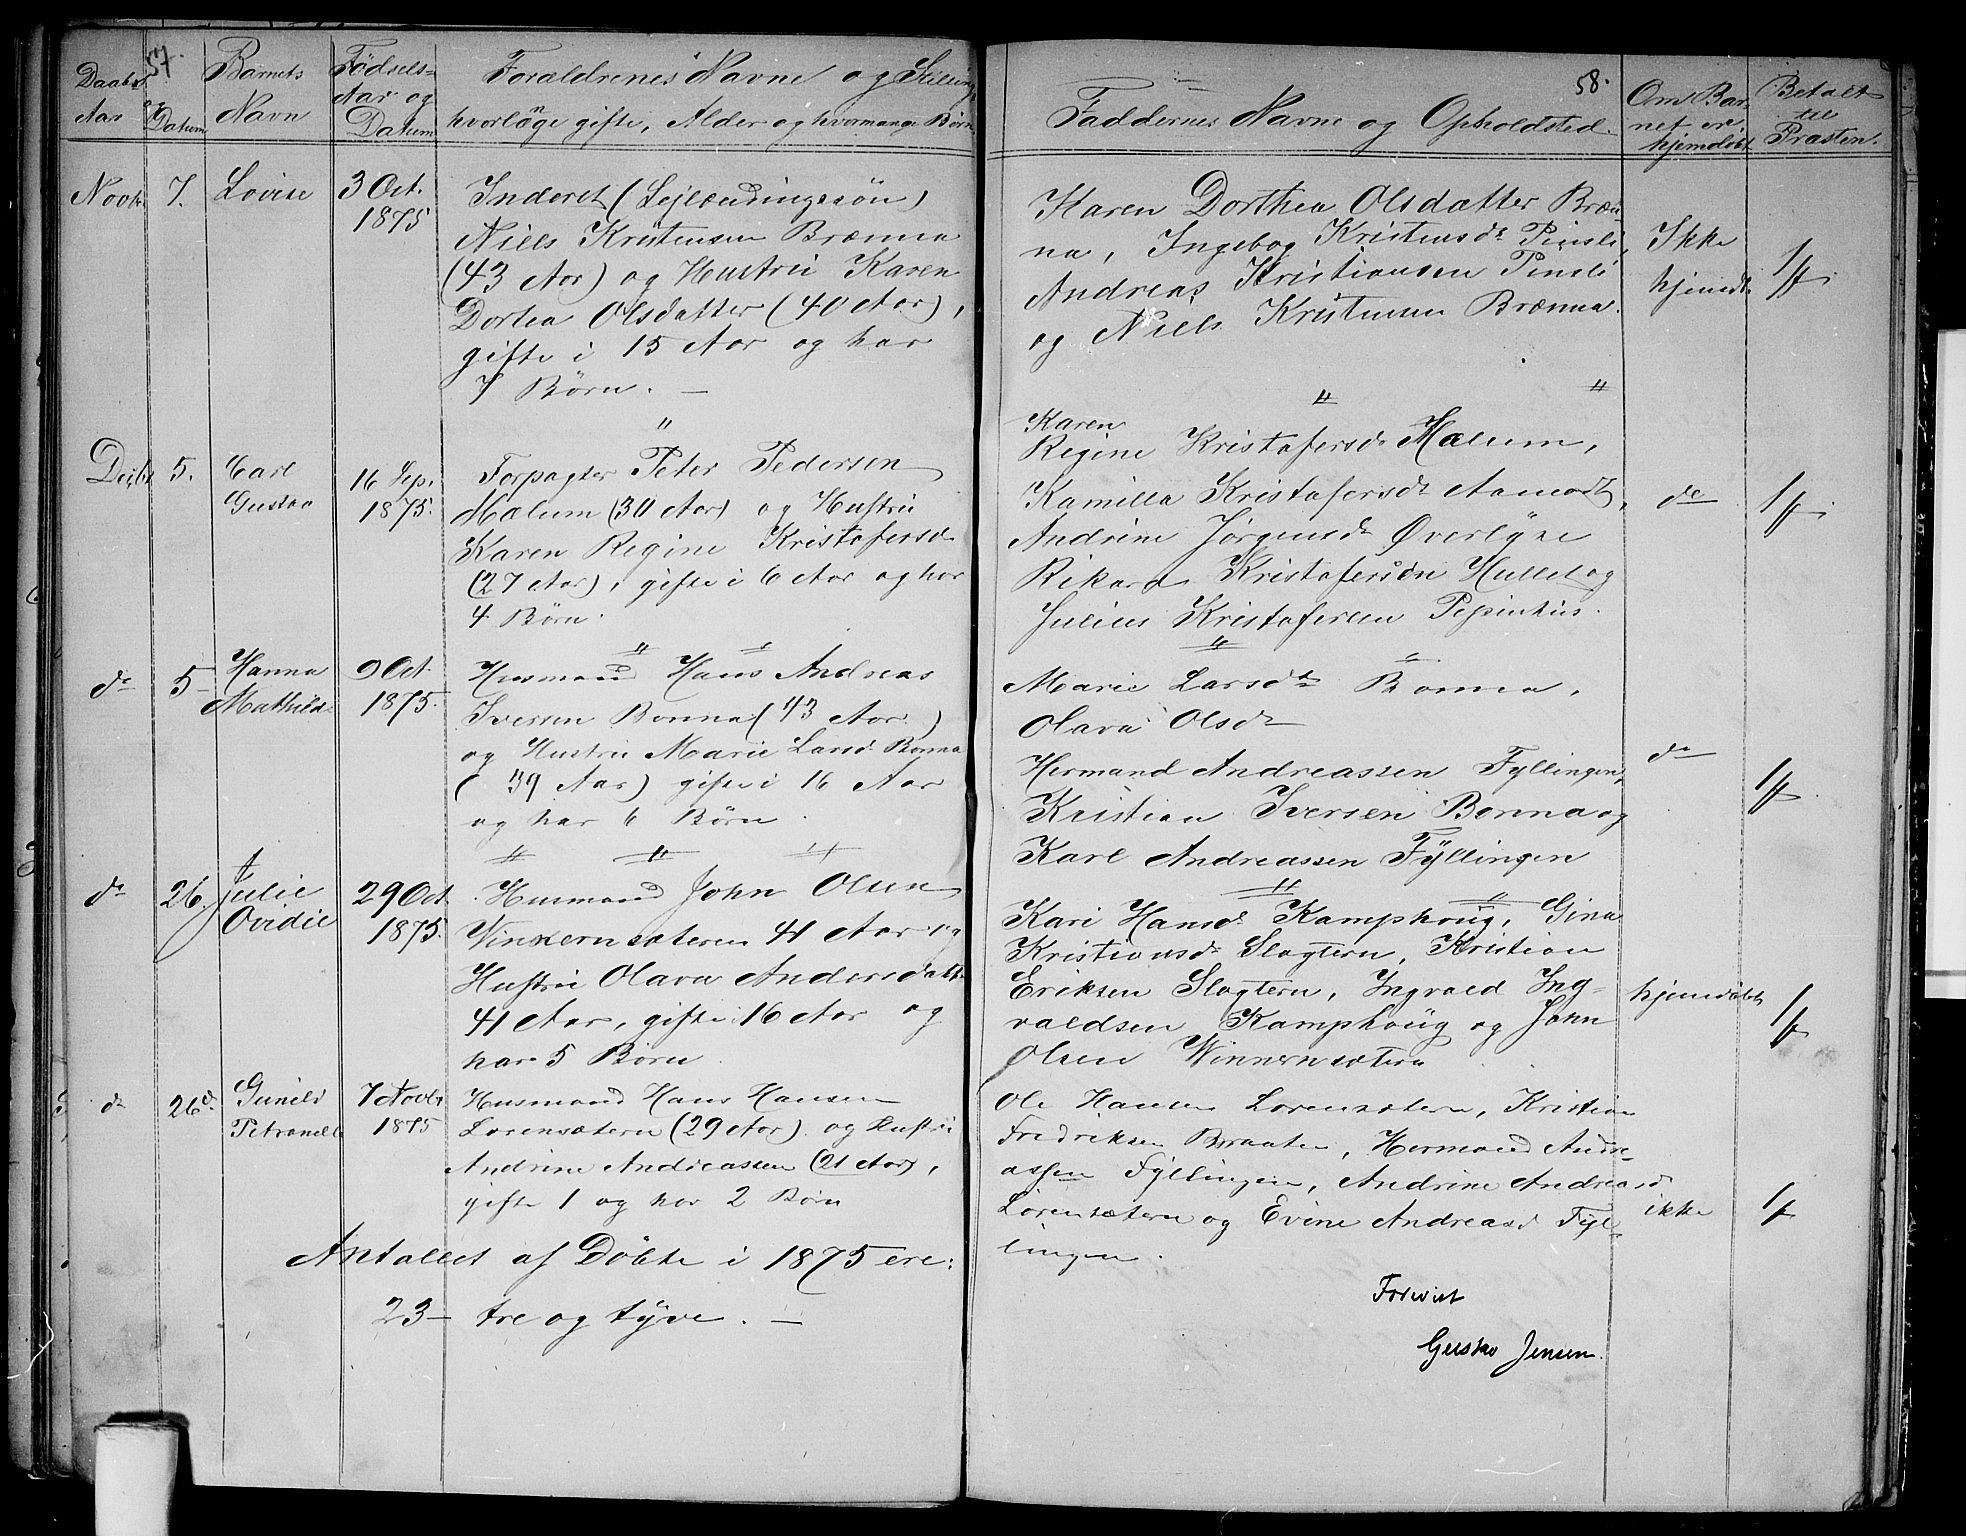 57.
Daabs
Aar
og
Datum
Barnets
Navn
Fødsels-
Aar og
Datum
Forældrenes Navne og Stilling,
hvorlænge gifte, Alder og hvormange Børn
Novbr
7.
Lovise
3 Oct.
1875
Inderst (Lejlændingssøn)
Niels Kristensen Brænna
(43 Aar) og Hustru Karen
Dortea Olsdatter (40 Aar),
gifte i 15 Aar og har
7 Børn. —
"
Decbr
5.
Carl
Gustav
16 Sep.
1875.
Forpagter Peter Pedersen
Mælum (30 Aar) og Hustru
Karen Regine Kristofersdr
(27 Aar), gifte i 6 Aar og har
4 Børn.
" "
do
5
Hanna
Mathilde
9 Oct.
1875.
Husmand Hans Andreas
Iversen Bonna (43 Aar)
og Hustru Marie Larsd. Bonna
(39 Aar) gifte i 16 Aar
og har 6 Børn.
" " "
do
26.
Julie
Ovidie
29 Oct
1875.
Husmand John Olsen
Winnernsæteren 41 Aar og
Hustru Olava Andersdatt.
41 Aar, gifte 16 Aar og
har 5 Børn.
do
26 d.
Gunild
Petronelle
7 Novbr
1875
Husmand Hans Hansen
Lorensætern (29 Aar) og Hustru
Andrine Andreassen (21 Aar),
gifte 1 og har 2 Børn
Antallet af Döbte i 1875 ere:
23 — tre og tyve. —
58.
Faddernes Navne og Opholdsted.
Om Bar-
net er
hjemdöbt
Betalt
til
Præsten.
Karen Dorthea Olsdatter Bræn-
na, Ingebog Kristensdr Pinsli,
Andreas Kristiansen Pinsli
og Niels Kristensen Brænna.
Ikke
hjemdbt
" "
Karen
Regine Kristofersdr Mælum,
Kamilla Kristofersdr Aamodt,
Andrine Jørgensdr Øverlyne
Rikard Kristofersön Hullet og
Julius Kristofersen Pepinhus.
do
" "
Marie Larsdr Bonna,
Olava Olsdr
Hermand Andreassen Fyllingen,
Kristian Iversen Bonna og
Karl Andreassen Fyllingen
do
" "
Kari Hansd. Kamphoug, Gina
Kristiansdr Slagtern, Kristian
Eriksen Slagtern, Ingvald Ing-
valdsen Kamphoug og John
Olsen Winnernsætern
hjemdöbt
Ole Hansen Lorensætern, Kristian
Fredriksen Braaten, Hermand Andre-
assen Fyllingen, Andrine Andreasd
Lorensætern og Evine Andreasd Fyl-
lingen.
ikke
Forevist
Gustav Jensen.